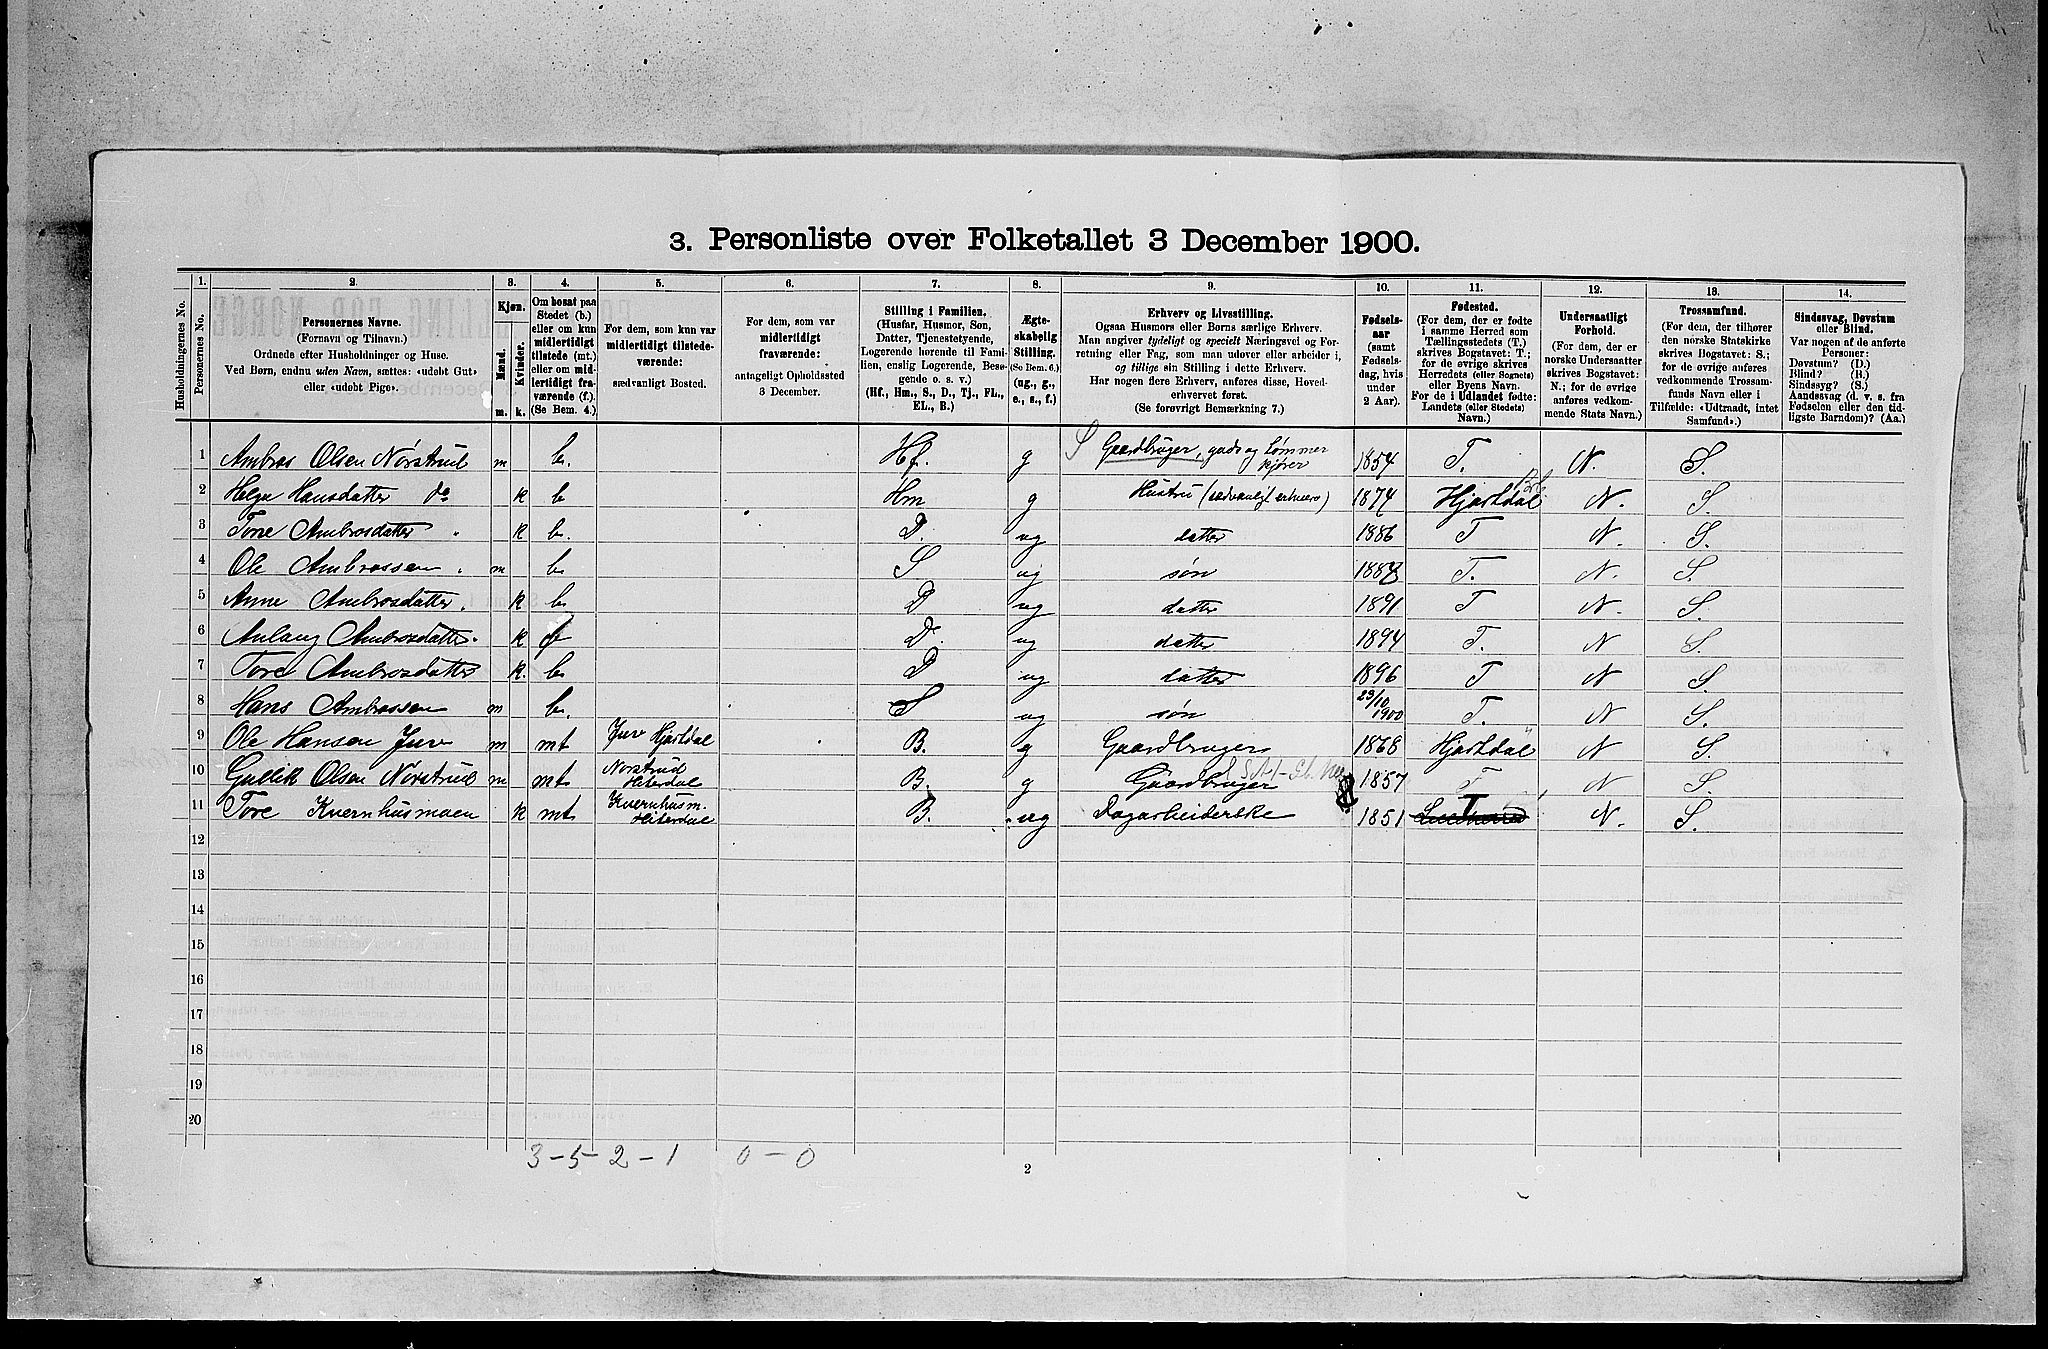 3. Personliste over Folketallet 3 December 1900.
Husholdningernes No.
1.
Personernes No.
2.
Personernes Navne.
(Fornavn og Tilnavn.)
Ordnede efter Husholdninger og Huse.
Ved Børn, endnu uden Navn, sættes: «udøbt Gut»
eller «udøbt Pige».
3.
Kjøn.
Mænd.
m.
Kvinder.
k.
4.
Om bosat paa
Stedet (b.)
eller om kun
midlertidigt
tilstede (mt.)
eller om mid-
lertidigt fra-
værende (f.).
(Se Bem. 4.)
5.
For dem, som kun var
midlertidigt tilstede-
værende:
sædvanligt Bosted.
6.
For dem, som var
midlertidigt
fraværende:
antageligt Opholdssted
3 December.
7.
Stilling i Familien.
(Husfar, Husmor, Søn,
Datter, Tjenestetyende,
Logerende hørende til Fami-
lien, enslig Logerende, Besø-
gende o. s. v.)
(Hf., Hm., S., D., Tj., FL.,
EL., B.)
8.
Ægte-
skabelig
Stilling.
(Se Bem. 6.)
(ug., g.,
e., s., f.)
9.
Erhverv og Livsstilling.
Ogsaa Husmors eller Børns særlige Erhverv.
Man angiver tydeligt og specielt Næringsvei og For-
retning eller Fag, som man udøver eller arbeider i,
og tillige sin Stilling i dette Erhverv.
Har nogen flere Erhverv, anføres disse, Hoved-
erhvervet først.
(Se forøvrigt Bemærkning 7.)
10.
Fødsels-
aar
(samt
Fødsels-
dag, hvis
under
2 Aar).
11.
Fødested.
(For dem, der er fødte
i samme Herred som
Tællingsstedets (T.)
skrives Bogstavet: T.;
for de øvrige skrives
Herredets (eller Sognets)
eller Byens Navn.
For de i Udlandet fødte:
Landets (eller Stedets)
Navn.)
12.
Undersaatligt
Forhold.
(For dem, der er
norske Undersaatter
skrives Bogstavet:
N.; for de øvrige
anføres vedkom-
mende Stats Navn.)
13.
Trossamfund.
(For dem, der tilhører
den norske Statskirke
skrives Bogstavet: S.;
for de øvrige anføres
vedkommende Trossam-
funds Navn eller i
Tilfælde: «Udtraadt, intet
Samfund».)
14.
Sindssvag, Døvstum
eller Blind.
Var nogen af de anførte
Personer:
Døvstum? (D.)
Blind? (B.)
Sindssyg? (S.)
Aandssvag (d. v. s. fra
Fødselen eller den tid-
ligste Barndom)? (Aa.)
1 Ambros Olsen Nørstrud m b. Hf. g S Gaardbruger, gads og tømmer kjører 1854 T. N. S.
2 Helge Hansdatter do k b Hm g Hustru (sædvanligt erhverv) 1874 Hjartdal N. S.
3 Tone Ambrosdatter " k b. D. ug datter 1886 T N. S.
4 Ole Ambrossen " m b S ug søn 1888 T. N. S.
5 Anne Ambrosdatter. k b D ug datter 1891 T N. S.
6 Aslaug Ambrosdatter. k b D. ug datter 1894 T. N S.
7 Tore Ambrosdatter k. b D ug datter 1896 T N S.
8 Hans Ambrossen m b. S ug søn 23/10 1900 T. N S.
9 Ole Hansen Juv m mt Juv Hjartdal B. g Gaardbruger 1868 Hjartdal N S.
10 Gullik Olsen Nørstrud m mt Nørstrud Hiterdal B. g Gaardbruger 1857 T N S.
11 Tore Kvernhusmoen k mt Kvernhusm. Hiterdal B. ug Dagarbeiderske 1851 T N. S.
12
13
14
15
16
17
18
19
20
3-5-2-1 0-0
2